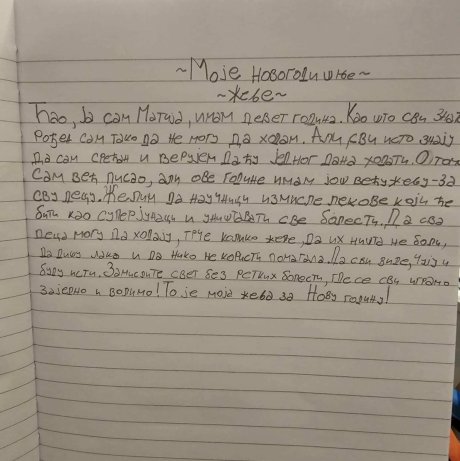 ~Моје новогодишње~
~жеље~
Ћао, Ја сам Матија, имам девет година. Као што сви знате
рођен сам тако да не могу да ходам. Али, сви исто знају
да сам срећан и верујем да ћу једног дана ходати. О томе
сам већ писао, али ове године имам још већу жељу-за
сву децу. Желим да научници измисле лекове који ће
бити као суперјунаци и уништавати све болести. Да сва
деца могу да ходају, трче колико желе, да их ништа не боли,
да дишу лако и да нико не користи помагала. Да сви виде, чују и
буду исти. Замислите свет без ретких болести, где се сви играмо
заједно и волимо! То је моја жеља за Нову годину!